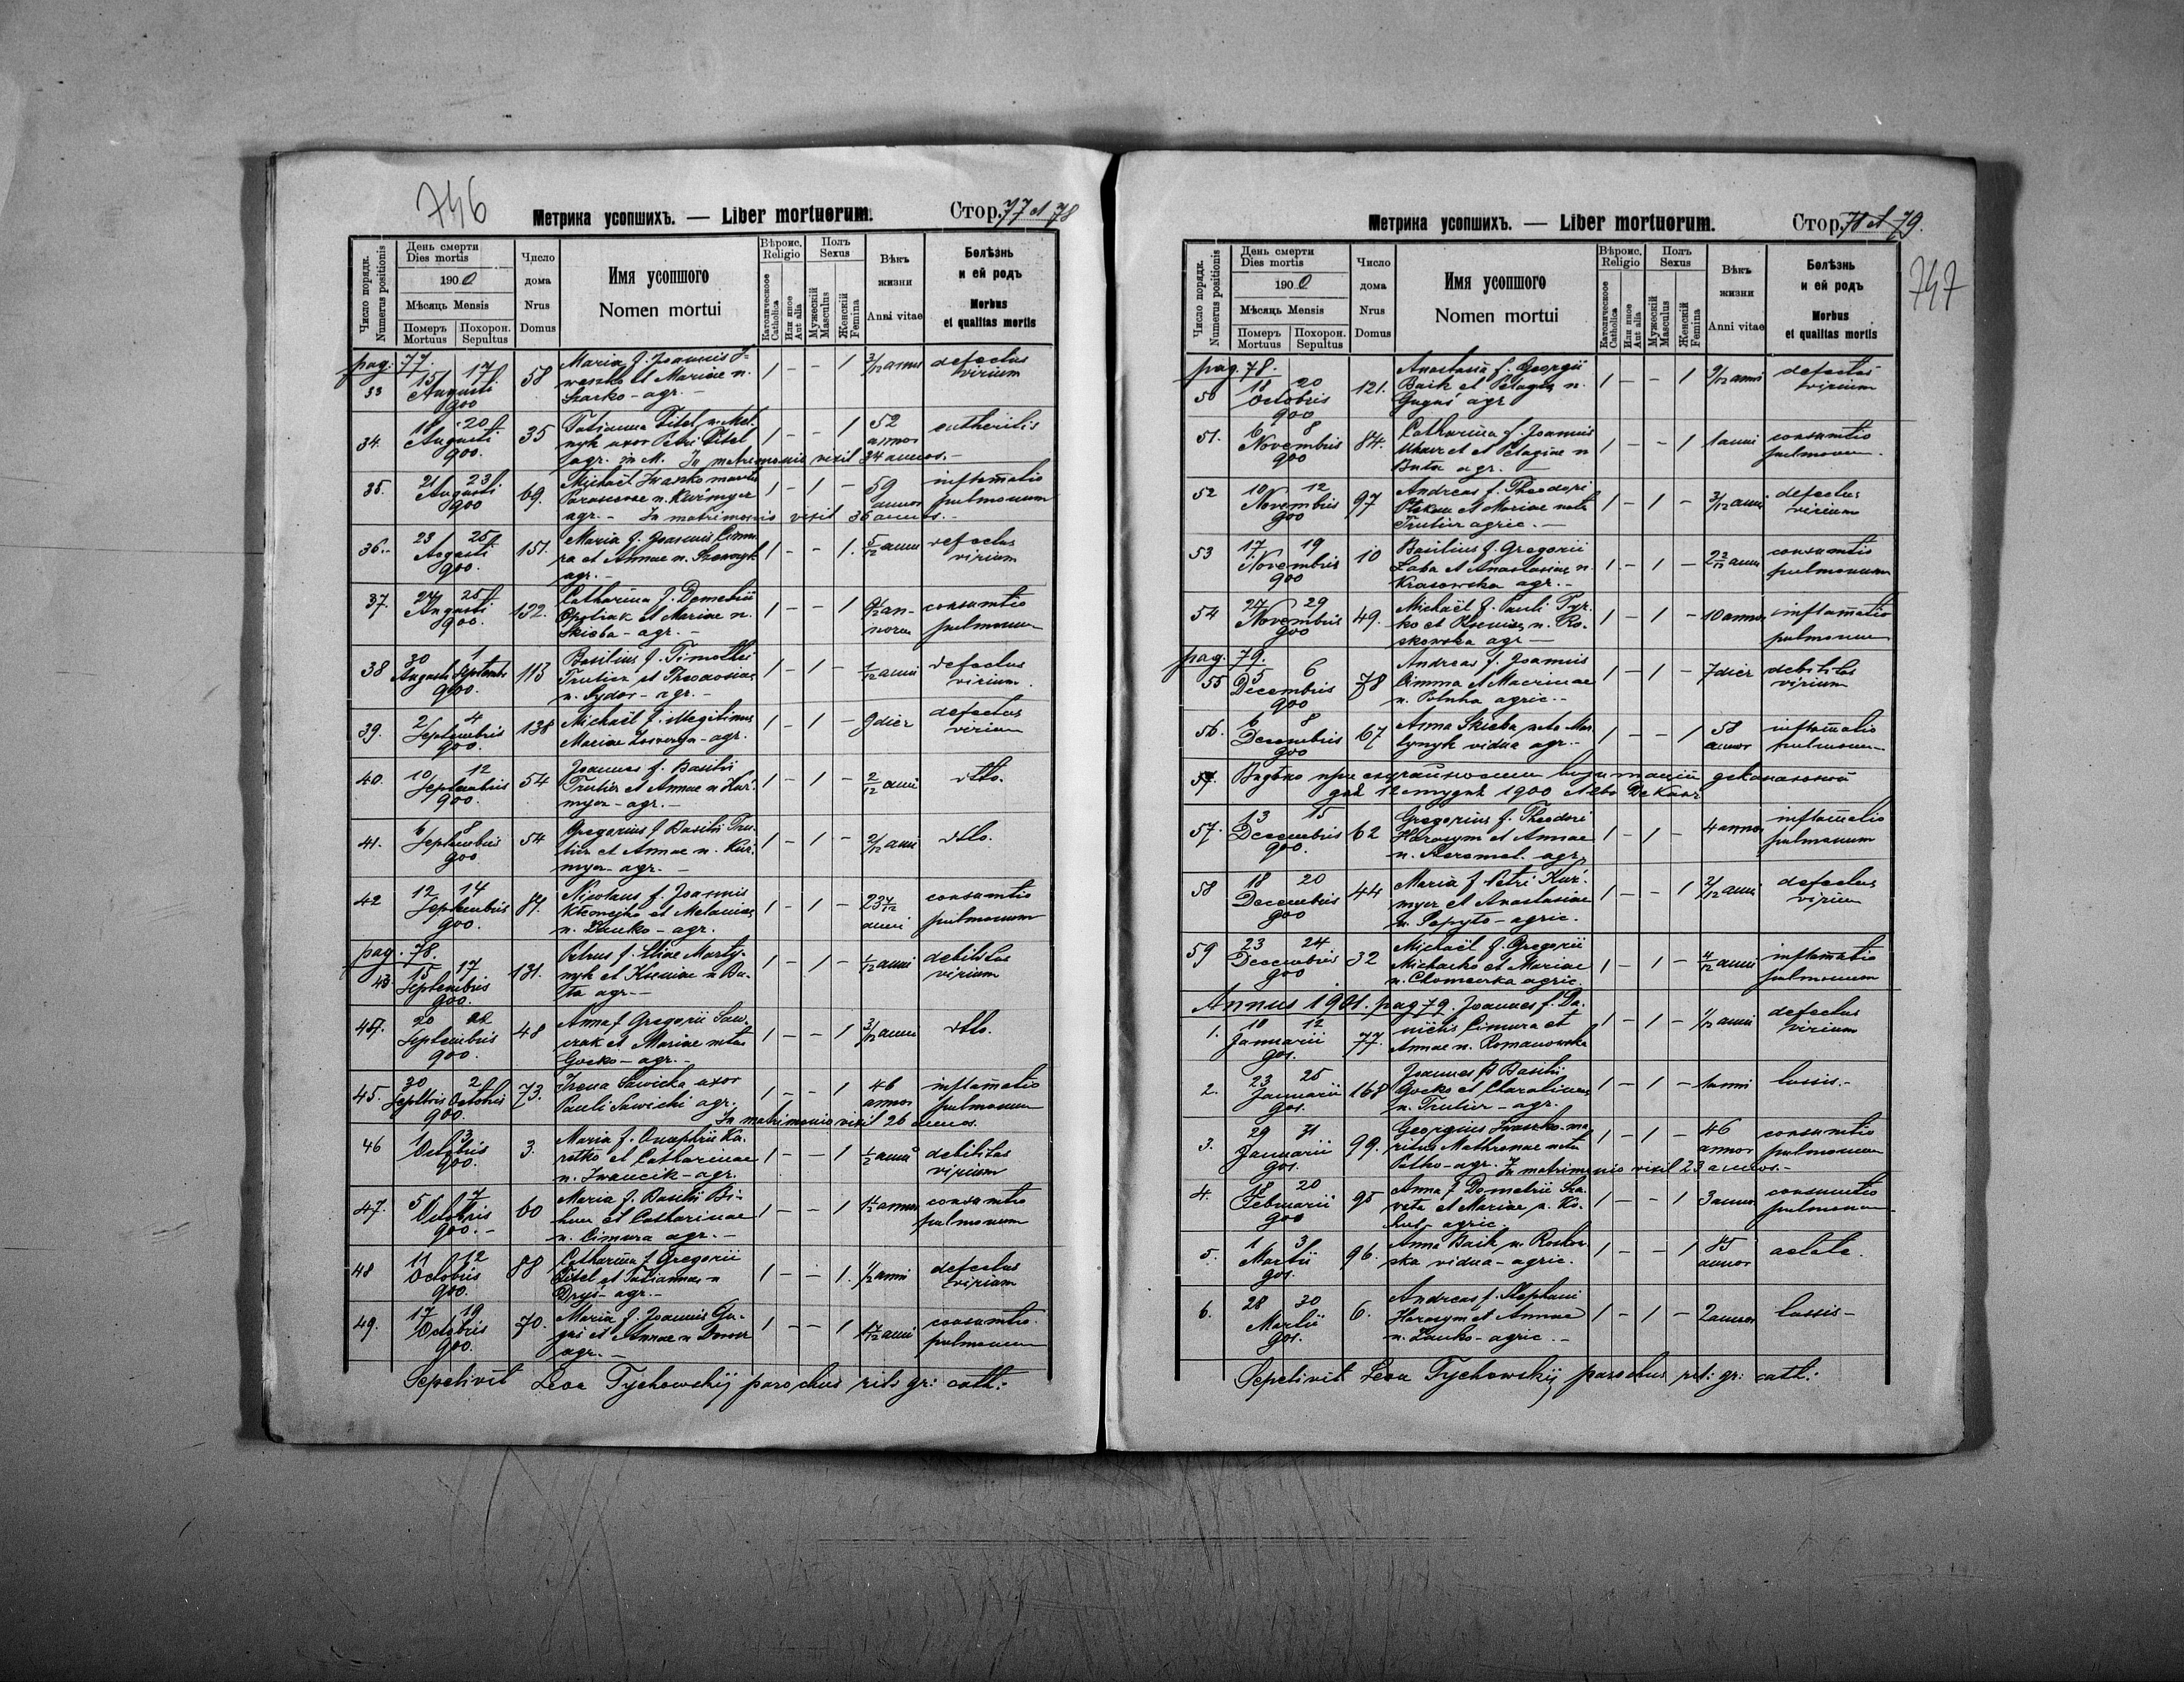 746
Метрика усопшихъ. — Liber mortuorum.
Стор. 77 et 78
Число порядк. Numerus positionis
День смерти
Dies mortis
1900
Мѣсяць Mensis
Померъ Mortuus
Похорон. Sepultus
Число дома Nrus Domus
Имя усопшого
Nomen mortui
Вѣроис. Religio
Католическоое Catholica
Или иное Aut alia
Полъ Sexus
Мужескій Masculus
Женскій Femina
Вѣкъ жизни Anni vitae
Болѣзнь и ей родъ
Morbus et qualitas mortis
pag. 77.
33 15 17 Augusti 900 58 Maria f. Joannis I-
waszko et Mariae n. 1 - - 1 3/12 anni defectus virium
Szarko - agr.
34. 18 20 Augusti 900. 35 Tatianna Titel n. Mel-
nyk uxor Petri Titel 1 - - 1 52 annos
agr. in M. In matrimonio vixit 34 annos.-
35. 21 23 Augusti 900 69. Michaël Iwasko maritus
Parascevae n. Kuśmyer 1 - 1 - 59 annos inflamatio pulmonum
agr. - In matrimonio vixit 36 annos.-
36. 23 25 Augusti 900. 151. Maria f. Joannis Cimu-
ra et Annae n. 1 - - 1. 5/12 anni defectus virium
agr. -
37. 24 25 Augusti 900. 122. Catharina f. Demetrii
et Mariae n. 1 - - 1 annorum consumtio pulmonum
Skieba - agr. -
38 30 Augusti 1 Septembr 900. 113 Basilius f. Timothei
Trutier et Theodosiae 1 - 1 - 1/12 anni defectus virium.
n. Sydor - agr. -
39. 2 4 Septembris 900. 138 Michaël f. illegitimus 1 - 1 - 9 dier defectus virium
Mariae - agr.
40. 10 12 Septembris 900. 54 Joannes f. Basilii
Trutier et Annae n Kuś- 1 - 1 - 2/12 anni dtto.
myer - agr. -
41. 6 8 Septembris 900. 54 Gregorius f Basilii Tru-
tier et Annae n. Kuś- 1 - 1 - 2/12 anni dtto.
myer - agr. -
42 12 14 Septembris 900. 87. Nicolaus f. Joannis
et Melaniae 1 - 1 - anni consumtio pulmonum
n. Zanko - agr.
pag. 78.
43 15 17 Septembris 900. 131. Petrus f. Eliae Marty-
nyk et Kseniae n Bu- 1 - 1 - 1/12 anni debilitas virium
ta agr. -
20 22 Septembris 900. 48 Anna f Gregorii Saw-
czak et Mariae nata 1 - - 1 3/12 anni dtto.
Gocko - agr. -
45. 30 Septbris 2 Octobris 900. 73. Irena Sawicka uxor
Pauli Sawicki agr. 1 - - 1 46 annos inflamatio pulmonum
In matrimonio vixit 26 annos.
46 1 3 Octobris 900. 3. Maria f. Onuphrii Ka-
ratko et Catharinae 1 - - 1 anni debilitas virium
n. Iwancik - agr.
47. 5 7 Octobris 900. - 60 Maria f. Basilii Bi-
et Catharinae 1 - - 1 consumtio pulmonum
n. Cimura agr. -
48 11 12 Octobris 900. 88 Catharina f Gregorii
Titel et Tatiannae n 1 - - 1. anni defectus virium
Dryś - agr. -
49. 17 19 Octobris 900. 70. Maria f. Joannis Gu-
guś et Annae n 1 - - 1 anni consumtio pulmonum
agr. -
Sepelivit Leon Tychowskij parochus rits gr: cath:
Метрика усопшихъ. — Liber mortuorum.
Стор. 78 et 79.
747
Число порядк. Numerus positionis
День смерти
Dies mortis
1900
Мѣсяць Mensis
Померъ Mortuus
Похорон. Sepultus
Число дома Nrus Domus
Имя усопшого
Nomen mortui
Вѣроис. Religio
Католическоое Catholica
Или иное Aut alia
Полъ Sexus
Мужескій Masculus
Женскій Femina
Вѣкъ жизни Anni vitae
Болѣзнь и ей родъ
Morbus et qualitas mortis
pag. 78.
50 18 20 Octobris 900 121. Anastasia f. Georgii
Baik et Pelagiae n. 1 - - 1 9/12 anni defectus virium
Guguś agr
51. 6 8 Novembris 900 84. Catharina f Joannis
et Pelagiae n 1 - - 1 1 anni consumtio pulmonum.
Buta agr. -
52 10 12 Novembris 900 97 Andreas f. Theodori
et Mariae nata 1 - 1 - 3/12 anni defectus virium
Trutier agric. -
53 17 19 Novembris 900 10 Basilius f. Gregorii
Zaba et Anastasiae n. 1 - 1 - 2 2/12 anni consumtio pulmonum
Krasowska agr. -
54 27 29 Novembris 900 49. Michaël f. Pauli Tyr-
ko et Kseniae n. Ro- 1 - 1 - 10 annos inflamatio pulmonum
skowska agr -
pag. 79.
55 5 6 Decembris 900 78 Andreas f. Joannis
Cimura et Macrinae 1 - 1 - 7 dier debilitas virium
n. agric. -
56. 6 8 Decembris 900 67 Anna Skieba nata Mar-
tynyk vidua agr. - 1 - - 1 58 annos inflamatio pulmonum
57. Видѣно при деканальной
дня 12 грудня 1900
57. 13 15 Decembris 900. 62 Gregorius f. Theodori
Harasym et Annae 1 - 1 - 4 annos inflamatio pulmonum
n. agr.
58 18 20 Decembris 900 44 Maria f Petri Kuś-
myer et Anastasiae 1 - - 1 2/12 anni defectus virium
n. Popyto - agric.
59 23 24 Decembris 900 32 Michaël f. Gregorii
Michasko et Mariae 1 - 1 - 4/12 anni inflamatio pulmonum
n. agric.
Annus 1901. pag 79. Joannes f. Da-
1. 10 12 Januarii 901. 77. nielis Cimura et 1 - 1 - 1/12 anni defectus virium
Annae n. Romanowska
2. 23 25 Januarii 901. 168 Joannes f Basilii
Gocko et Charolinae 1 - 1 - 1 anni tussis. -
n. Trutier - agr.
3. 29 31 Januarii 901. 99. Georgius Iwaszko ma-
ritus Mathronae nata 1 - 1 - 46 annos consumtio pulmonum
Patko - agr. In matrimonio vixit 23 annos. -
4. 18 20 Februarii 900 95 Anna f Demetrii Sza-
reta et Mariae n. Ko- 1 - - 1 3 annos consumtio pulmonum
hut agric.
5. 1 3 Martii 901. 96. Anna Baik n. Roskow-
ska vidua - agric. 1 - - 1 85 annos aetate.
6. 28 30 Martii 901. 6. Andreas f. Stephani
Harasym et Annae 1 - 1 - 2 annos tussis -
n. Zanko - agric. -
Sepelivit Leon Tychowskij parochus rit: gr: cath: